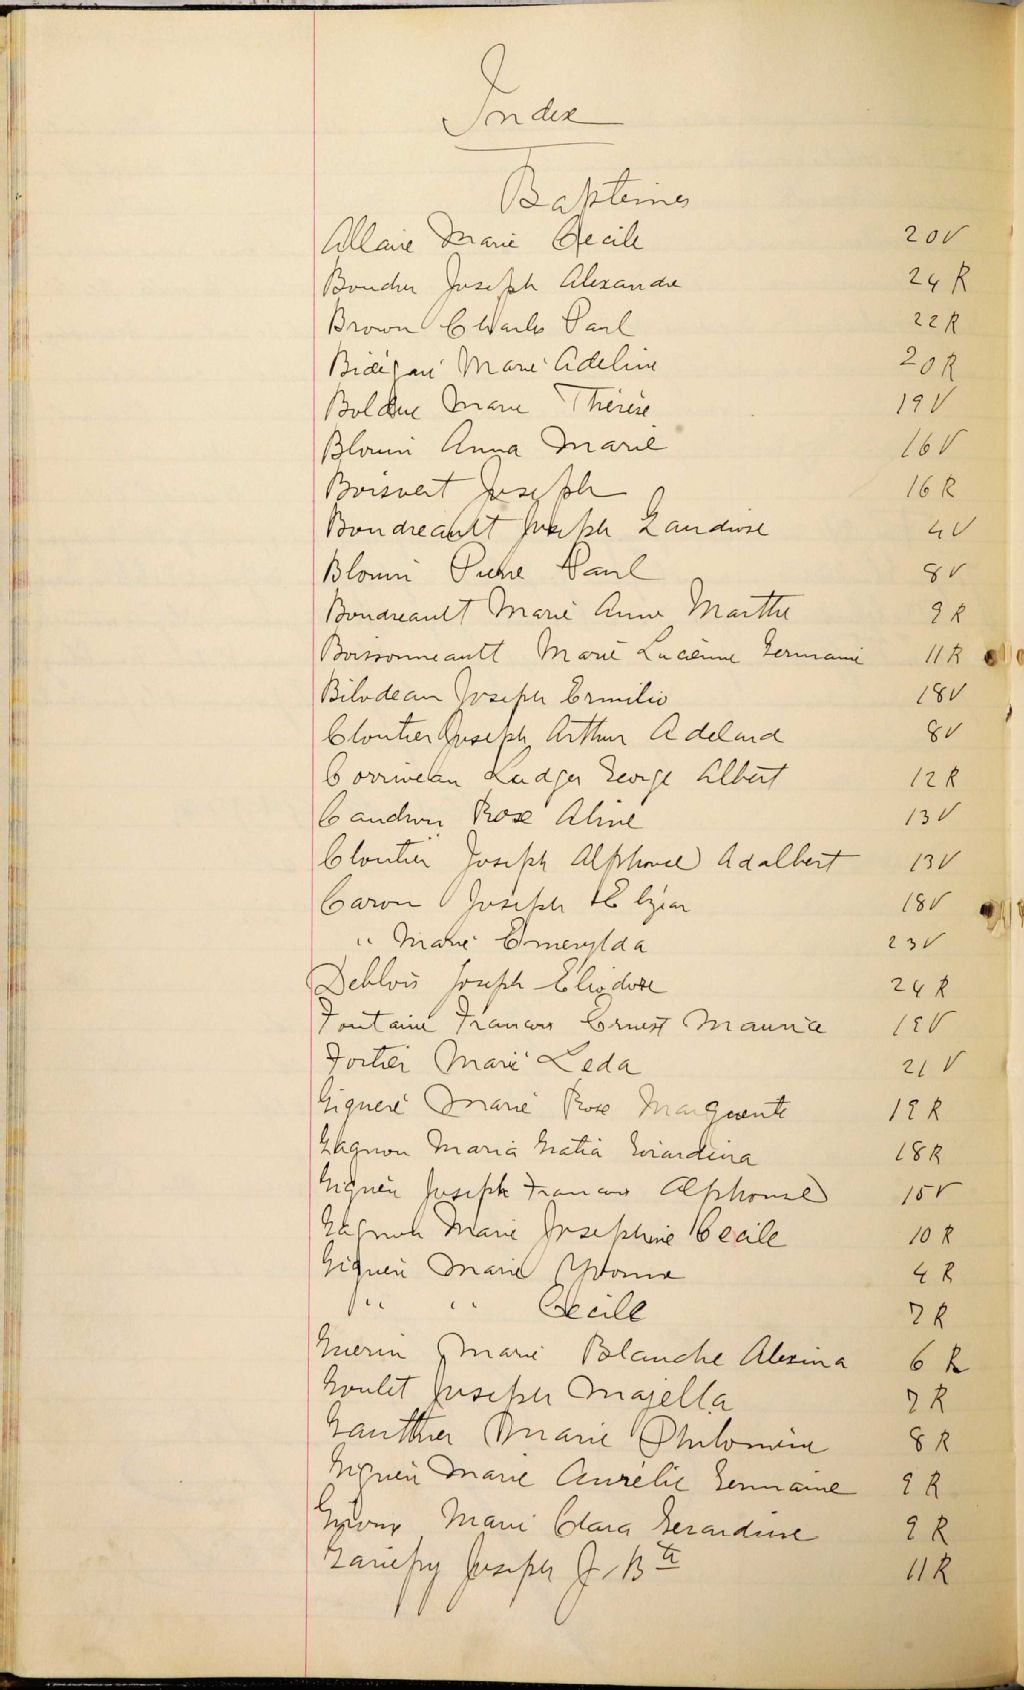 Index
Baptêmes
Allaire Marie Cecile 20V
Boucher Joseph Alexandre 24 R
Brown Charles Paul 22R
Bidégaré Marie Adeline 20R
Bolduc Marie Thérèse 19V
Blouin Anna Marie 16V
Boisvert Joseph 16R
Boudreault Joseph Gaudiose 4V
Blouin Pierre Paul 8V
Boudreault Marie Anne Marthe 9R
Boissonneault Marie Lucienne Germaine 11R
Bilodeau Joseph Ermilio 18V
Cloutier Joseph Arthur Adelard 8V
Corriveau Ludger George Albert 12R
Caudron Rose Aline 13V
Cloutier Joseph Alphonse Adalbert 13V
Caron Joseph Elzéar 18V
" Marie Emerylda 23V
Deblois Joseph Eliodore 24R
Fontaine Francois Ernest Maurice 19V
Fortier Marie Leda 21V
Giguère Marie Rose Marguerite 19R
Gagnon Maria Gratia Girardina 18R
Giguère Joseph Francois Alphonse 15V
Gagnon Marie Josephine Cecile 10R
Giguère Marie Yvonne 4R
" " Cecile 7R
Guerin Marie Blanche Alexina 6R
Goulet Joseph Majella 7R
Gauthier Marie Philomène 8R
Giguère Marie Aurélie Germaine 9R
Giroux Marie Clara Gerardine 9R
Gariepy Joseph J. Bte 11R